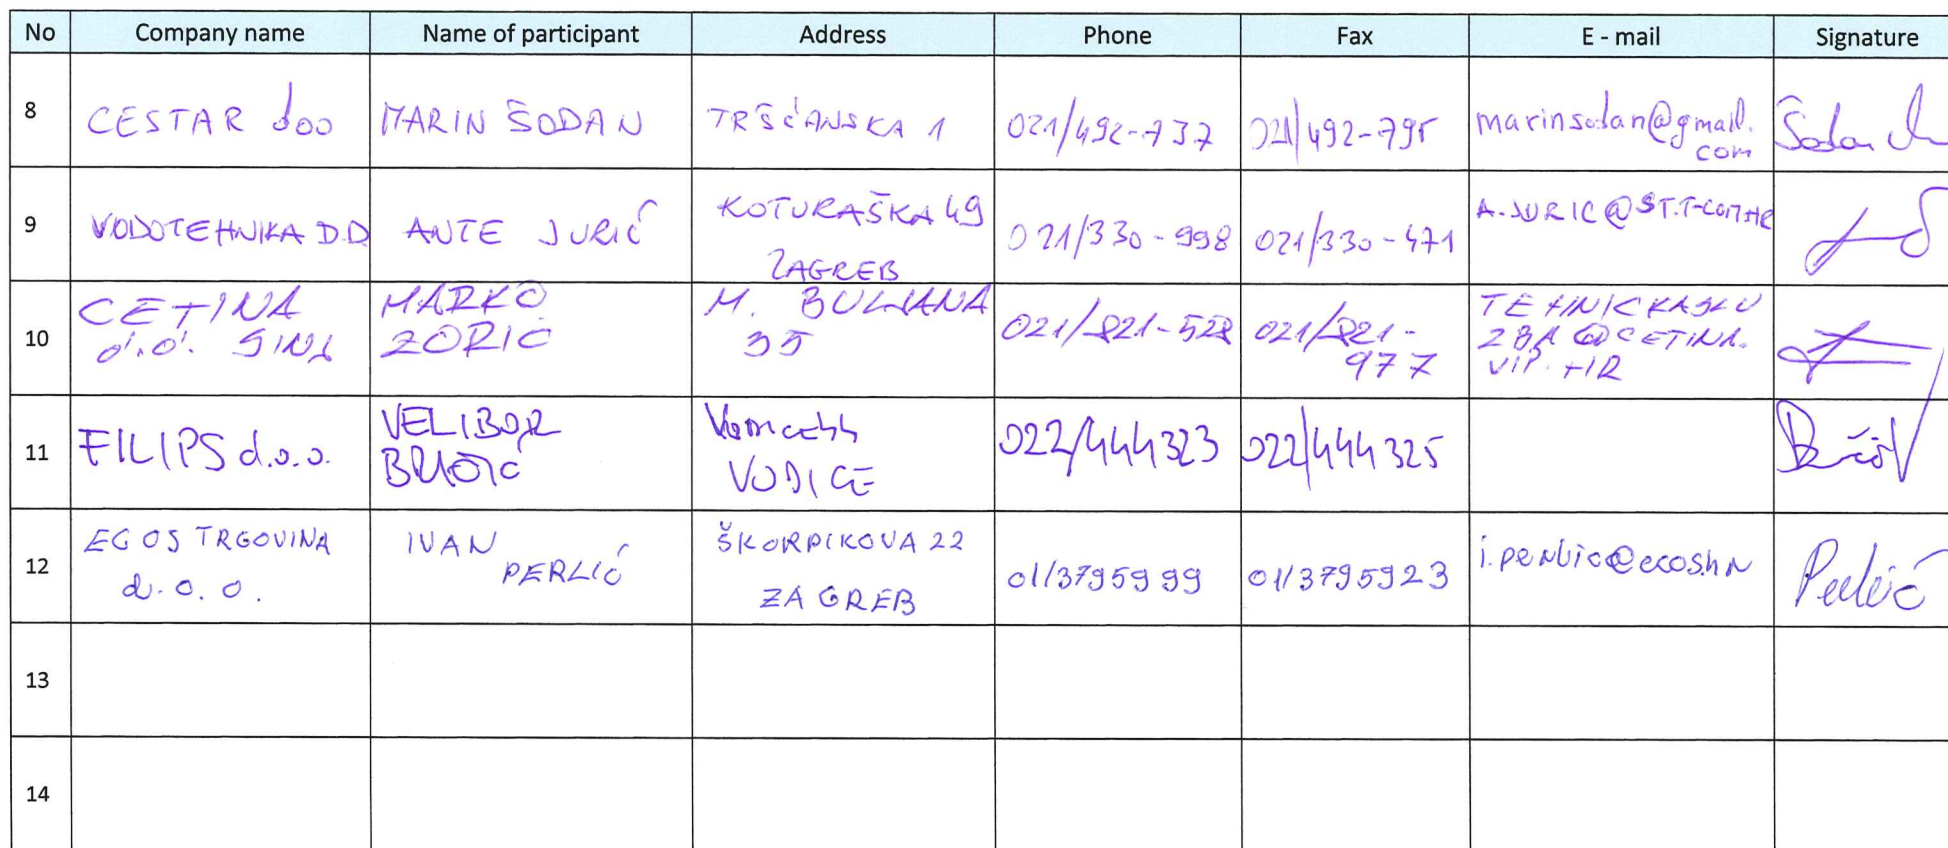 No Company name Name of participant Address Phone Fax E - mail Signature
8 CESTAR doo MARIN ŠODAN TRŠĆANSKA 1 021/492-737 021/492-795 marinsodan@gmail.
com
9 VODOTEHNIKA D.D ANTE JURIĆ KOTURAŠKA 49
ZAGREB 021/330-998 021/330-471 A.JURIC@ST.T-COM.HR
10 CETINA
d.o. SINJ MARKO
ZORIC M. BULJANA
35 021/821-528 021/821-
977 TEHNICKASLU
ZBA@CETINA.
VIP.HR
11 FILIPS d.o.o. VELIBOR
VODICE 022/444323 022/444325
12 EGOS TRGOVINA
d.o.o. IVAN
PERLIĆ ŠKORPIKOVA 22
ZAGREB 01/3795999 01/3795923
13
14